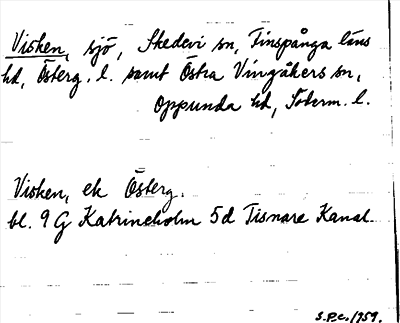 Visken, sjö, Skedevi sn, Finspånga läns
hd, Österg. l. samt Östra Vingåkers sn,
Oppunda hd, Söderm. l.
Visken, ek Österg.
bl. 9 G Katrineholm 5d Tisnare Kanal.
S.P.C. 1959.